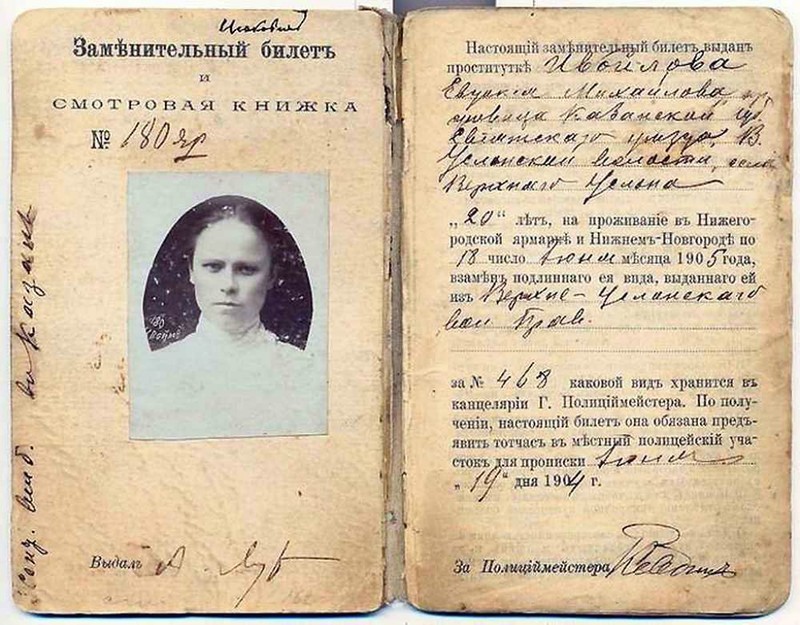 Замѣнительный билетъ
и
СМОТРОВАЯ КНИЖКА
№ 180 яр
Выдалъ А.
въ Казань
Настоящій замѣнительный билетъ выданъ
проституткѣ Ивойлова
Михайлова
Казанской
уѣзда, В.
Услонской волости, села
Верхняго Услона
„20“ лѣтъ, на проживаніе въ Нижего-
родской ярмаркѣ и Нижнемъ-Новгородѣ по
18 число Іюня мѣсяца 1905 года,
взамѣнъ подлиннаго ея вида, выданнаго ей
изъ Верхне-Услонскаго
вол. Прав.
за № 468 каковой видъ хранится въ
канцеляріи Г. Полиціймейстера. По полу-
ченіи, настоящій билетъ она обязана предъ-
явить тотчасъ въ мѣстный полицейскій уча-
стокъ для прописки Іюня
„19“ дня 1904 г.
За Полиціймейстера